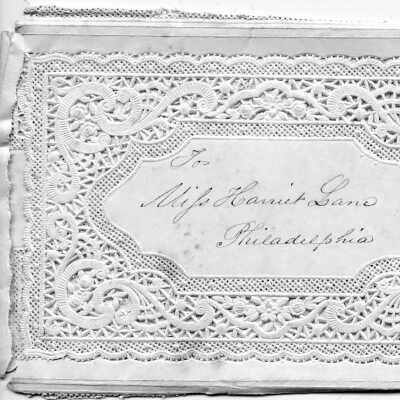 To
Miss Harriet Lane
Philadelphia